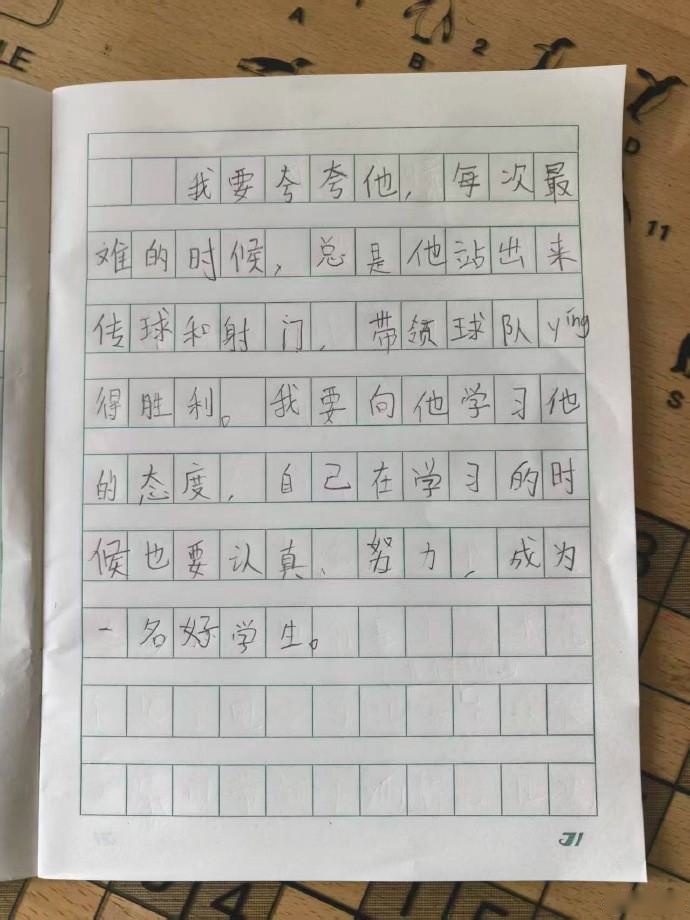 LE
A
B
2
D
11
S
我要夸夸他，每次最
难的时候，总是他站出来
传球和射门，带领球队yíng
得胜利。我要向他学习他
的态度，自己在学习的时
候也要认真、努力，成为
一名好学生。
31
8
4